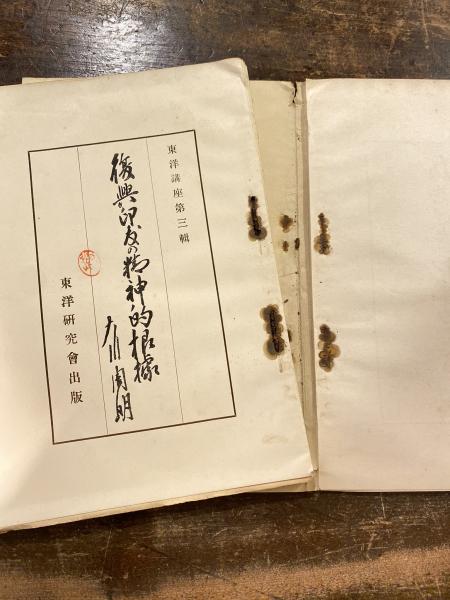 東洋講座第三輯
復興印度の精神的根拠
大川周明
東洋研究會出版